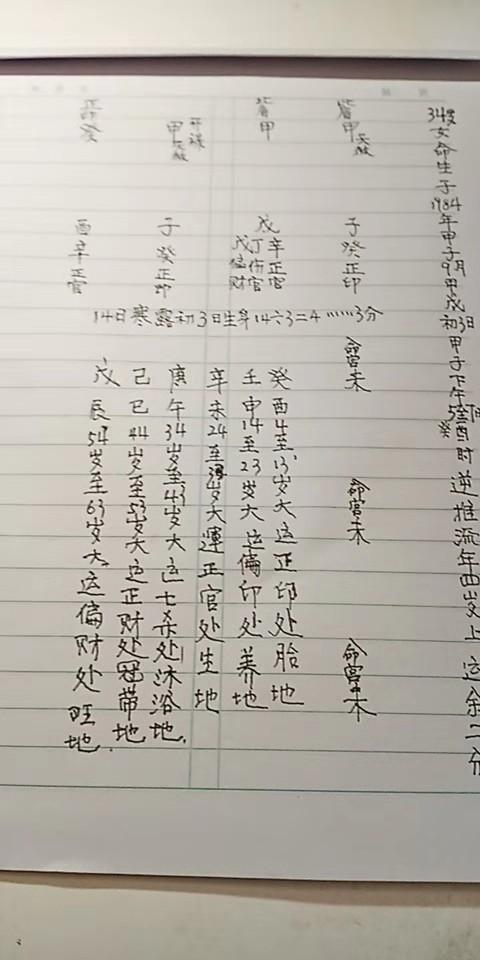 34岁女命生于1984年甲子9月甲戌初3日甲子下午5至7时癸酉时逆推流年四岁上运余二分
比肩甲天赦
子癸正印
命宫未
命宫未
命宫未
比肩甲
戌
辛正官
丁伤官
戊偏财
日禄
甲天赦
子癸正印
正印癸
酉辛正官
14日寒露初3日生身14÷3=4……3分
癸酉4至13岁大运正印处胎地
壬申14至23岁大运偏印处养地
辛未24至33岁大運正官处生地
庚午34岁至43岁大运七杀处沐浴地.
己巳44岁至53岁大运正财处冠带地
戊辰54岁至63岁大运偏财处旺地.